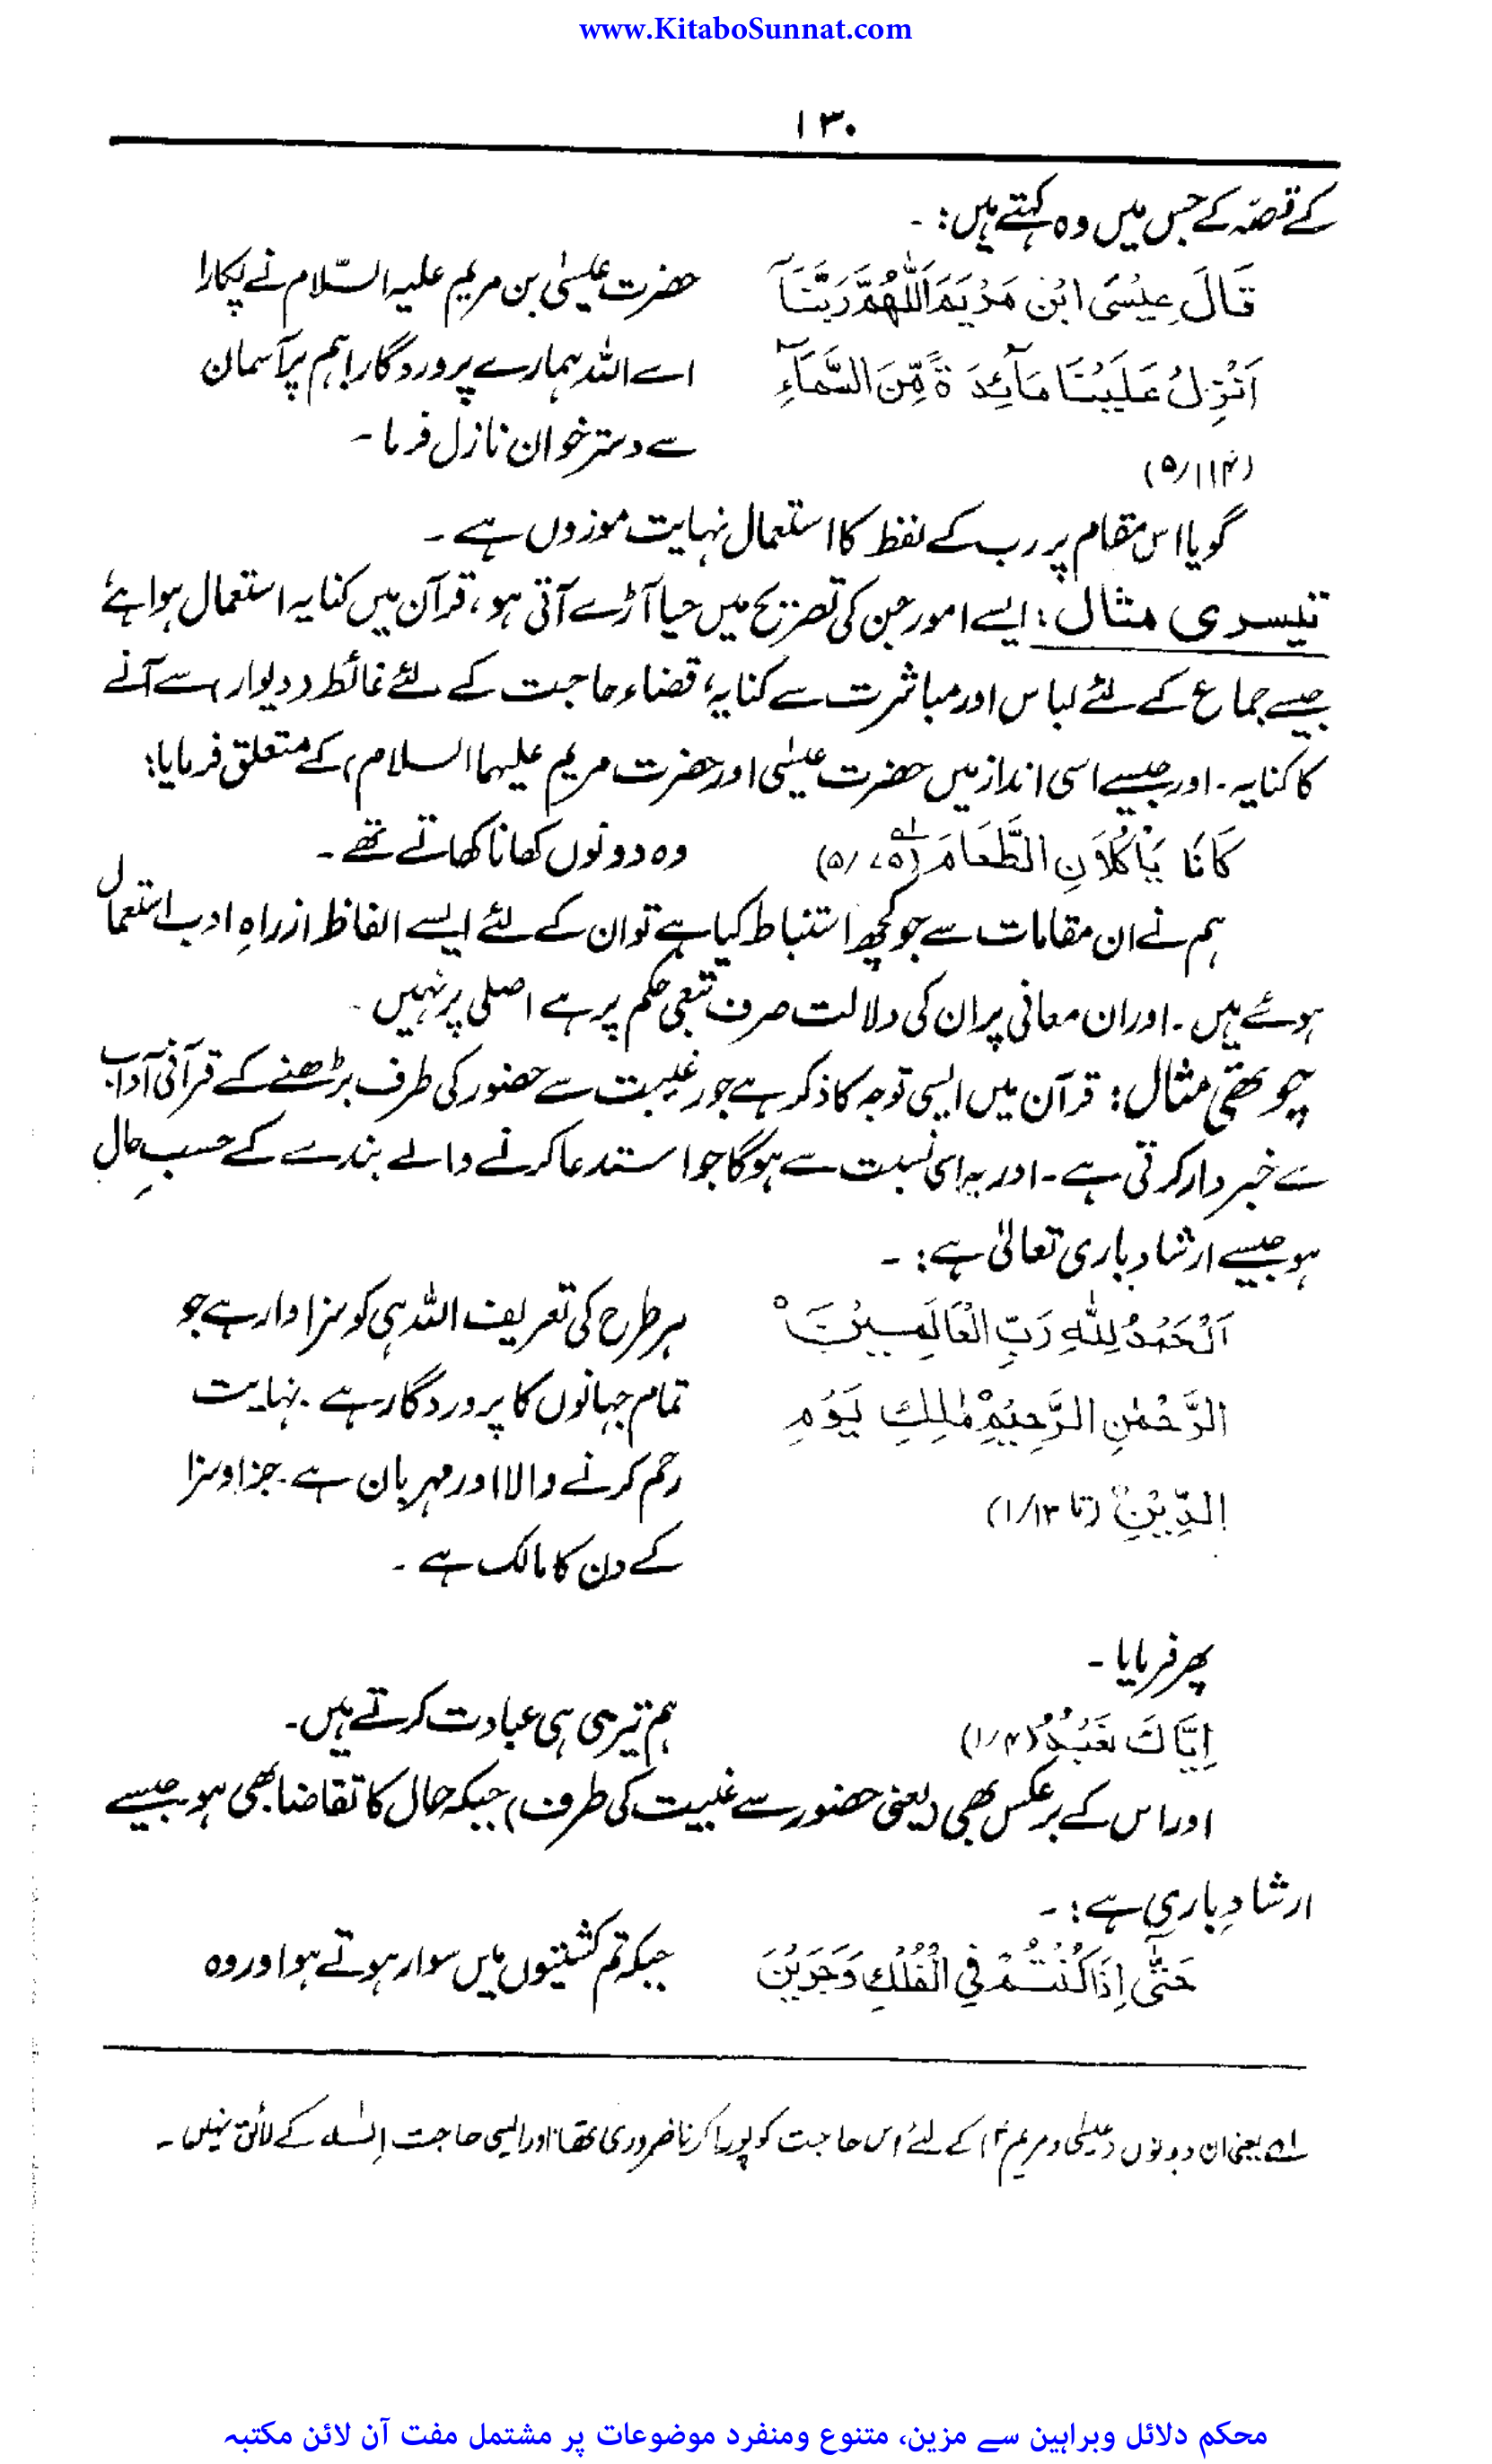 www.KitaboSunnat.com
۱۳۰
کے قصّہ کے جس میں وہ کہتے ہیں: ۔
قَالَ عِیْسَی ابْن مَرْیَمَ اللّٰهُمَّ رَبَّنَآ حضرت عیسیٰ بن مریم علیہ السّلام نے پکارا
اَنْزِلْ عَلَیْنَا مَآئِدَ ةً مِّنَ السَّمَآءِ اے اللہ ہمارے پروردگار! ہم پر آسمان
(۵/۱۱۴) سے دسترخوان نازل فرما ۔
گویا اس مقام پر رب کے لفظ کا استعمال نہایت موزوں ہے ۔
تیسری مثال: ایسے امور جن کی تصریح میں حیا آڑے آتی ہو، قرآن میں کنایہ استعمال ہوا ہے
جیسے جماع کے لئے لباس اور مباشرت سے کنایہ، قضاء حاجت کے لئے غائط (دیوار) سے آنے
کا کنایہ ۔ اور جیسے اسی انداز میں حضرت عیسٰی اور حضرت مریم علیہما السلام) کے متعلق فرمایا:
کَانَا یَاْکُلَانِ الطَّعَامَ (۵/۷۵) لہ وہ دونوں کھانا کھاتے تھے ۔
ہم نے ان مقامات سے جو کچھ استنباط کیا ہے تو ان کے لئے ایسے الفاظ از راہِ ادب استعمال
ہوئے ہیں ۔ اور ان معانی پر ان کی دلالت صرف تبعی حکم پر ہے اصلی پر نہیں ۔
چوتھی مثال: قرآن میں ایسی توجہ کا ذکر ہے جو غیبت سے حضور کی طرف بڑھنے کے قرآنی آداب
سے خبردار کرتی ہے ۔ اور یہ اسی نسبت سے ہوگا جو استدعا کرنے والے بندے کے حسبِ حال
ہو جیسے ارشاد باری تعالیٰ ہے: ۔
اَلْحَمْدُ لِلّٰهِ رَبِّ الْعَالَمِیْنَ ° ہر طرح کی تعریف اللہ ہی کو سزاوار ہے جو
الرَّحْمٰنِ الرَّحِیْمِ ° مٰلِكِ یَوْمِ تمام جہانوں کا پروردگار ہے ۔ نہایت
الدِّیْنِ ° (۱/۳ تا ۱) رحم کرنے والا اور مہربان ہے ۔ جزا و سزا
کے دن کا مالک ہے ۔
پھر فرمایا ۔
اِیَّاكَ نَعْبُدُ (۱/۴) ہم تیری ہی عبادت کرتے ہیں ۔
اور اس کے برعکس بھی (یعنی حضور سے غیبت کی طرف) جبکہ حال کا تقاضا بھی ہو ۔ جیسے
ارشادِ باری ہے: ۔
حَتّٰٓی اِذَا کُنْتُمْ فِی الْفُلْكِ وَجَرَیْنَ جبکہ تم کشتیوں میں سوار ہوتے ہو اور وہ
لہ یعنی ان دونوں (عیسٰی و مریم ؑ) کے لئے اس حاجت کو پورا کرنا ضروری تھا اور ایسی حاجت اِلٰہ کے لائق نہیں ۔
محکم دلائل وبراہین سے مزین، متنوع ومنفرد موضوعات پر مشتمل مفت آن لائن مکتبہ